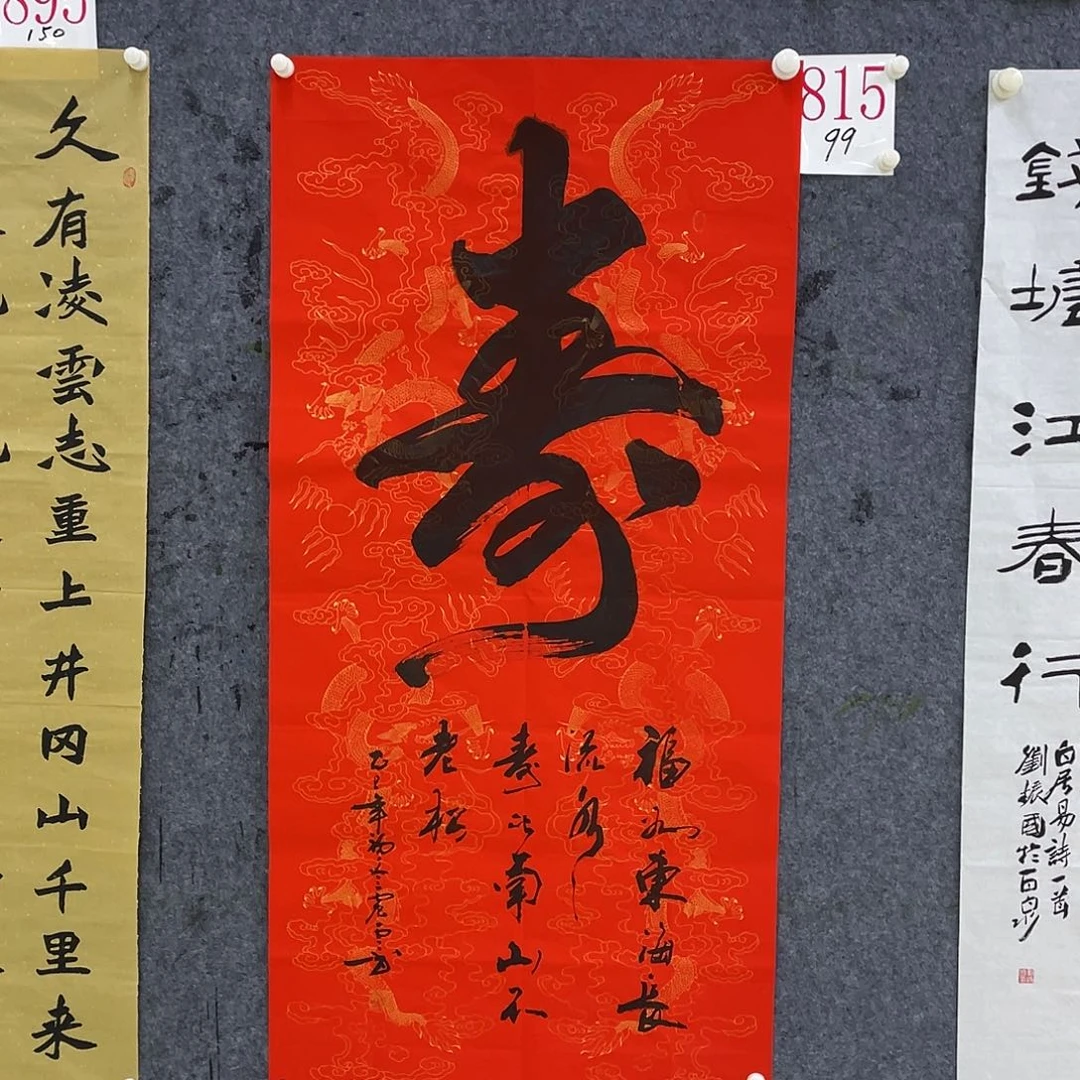 895
150
久有凌雲志重上井冈山千里来
815
99
壽
福如東海長
流水
壽比南山不
老松
乙巳年
錢塘江春行
白居易詩一首
劉振國於百泉